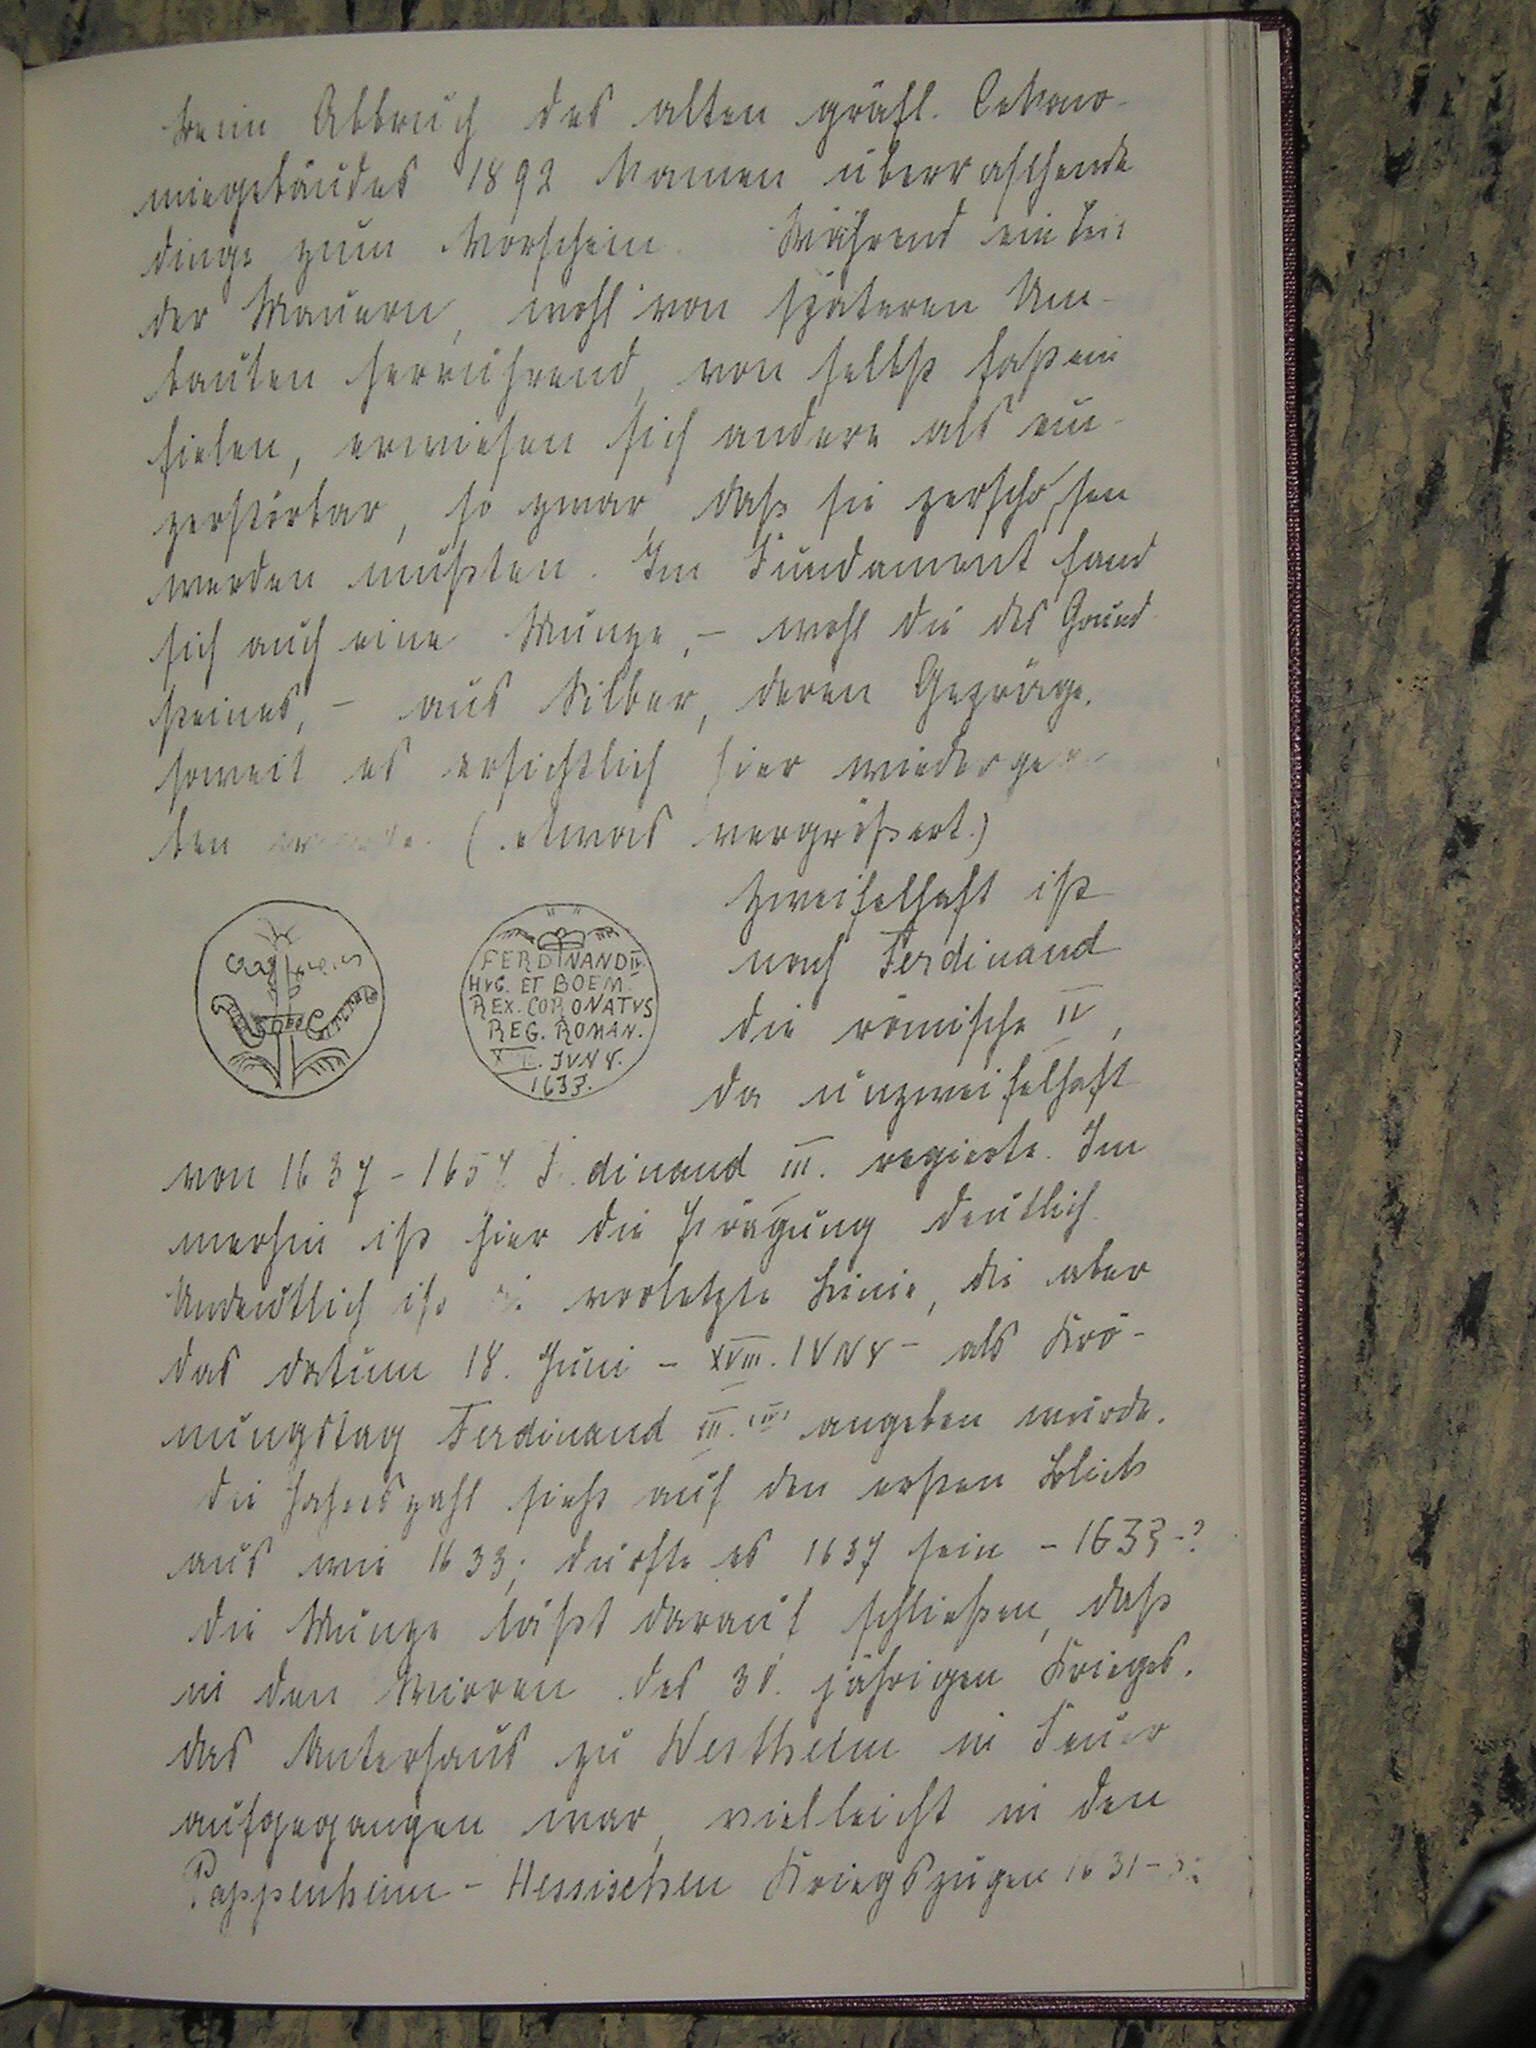 Beim Abbruch des alten gräfl. Oekono-
miegebäudes 1892 kamen überraschende
Dinge zum Vorschein. Während ein Teil
der Mauern, wohl von späteren Um-
bauten herrührend, von selbst fast ein
fielen, erwiesen sich andere als un-
zerstörbar, so zwar, daß sie zerschossen
werden mußten. Im Fundament fand
sich auch eine Münze, - wohl die des Grund
steines, - aus Silber, deren Gepräge,
soweit es ersichtlich hier wiederge
ben (etwas vergrößert.)
Zweifelhaft ist
nach Ferdinand
die römische IV,
da unzweifelhaft
FERDINAND IV
HVG. ET BOEM.
REX. CORONATVS
REG. ROMAN.
JVNY.
1633.
von 1637 - 1657 Ferdinand III. regierte. Im
merhin ist hier die Prägung deutlich.
Undeutlich ist die vorletzte Linie, die aber
das Datum 18. Juni - XVIII. IVNY - als Krö-
nungstag Ferdinand III. (IV) angeben würde.
Die Jahreszahl sieht auf den ersten Blick
aus wie 1633; dürfte es 1637 sein - 1633 -?
Die Münze läßt darauf schließen, daß
in den Wirren des 30. jährigen Krieges.
das Unterhaus zu Westheim in Feuer
aufgegangen war, vielleicht in den
Pappenheim - Hessischen Kriegszügen 1631 -